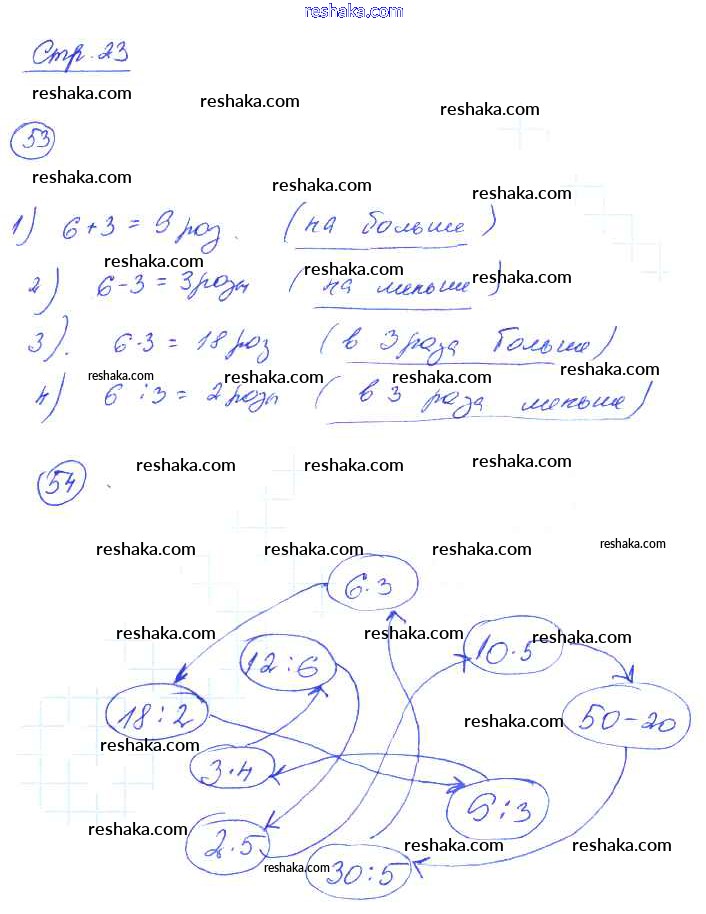 reshaka.com
Стр. 23
reshaka.com reshaka.com reshaka.com
53
reshaka.com reshaka.com reshaka.com
1) 6+3 = 9 роз. (на больше)
reshaka.com reshaka.com reshaka.com
2) 6-3 = 3 розы (на меньше)
3). 6·3 = 18 роз (в 3 раза больше)
reshaka.com reshaka.com reshaka.com reshaka.com
4) 6:3 = 2 розы (в 3 раза меньше)
54
reshaka.com reshaka.com reshaka.com
reshaka.com reshaka.com reshaka.com reshaka.com
6·3
reshaka.com reshaka.com reshaka.com
12:6 10·5
18:2 50-20
reshaka.com reshaka.com
3·4
9:3
reshaka.com reshaka.com reshaka.com
2·5
30:5
reshaka.com